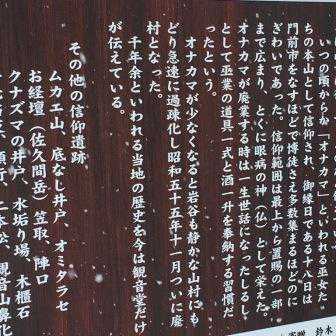 いちの口眼
ちの本山として信仰され、御縁日である十八日は
門前市をなすほどで博徒さえ多数集まるほどのに
ぎわいであった。信仰範囲は最上から置賜の一部
まで広まり、とくに眼病の神（仏）として栄えた。
オナカマが廃業する時は一生世話になったしるし
として巫業の道具一式と酒一升を奉納する習慣だ
ったという。
オナカマが少なくなると岩谷も静かな山村にも
どり急速に過疎化し昭和五十五年十一月ついに廃
村となった。
千年余といわれる当地の歴史を今は観音堂だけ
が伝えている。
その他の信仰遺跡
ムカエ山、底なし井戸、オミタラセ
お経壇（佐久間岳）笠取、陣口
クナズマの井戸、水垢り場、木櫃石
観音山鼻